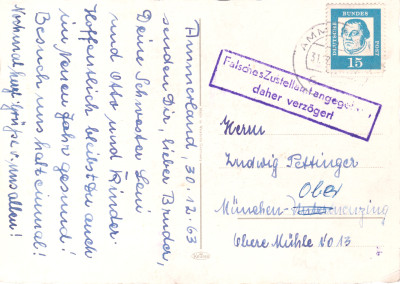 Ammerland, 30.12.63
senden Dir, lieber Bruder,
Deine Schwester Leni
und Otto und Kinder.
Hoffentlich bleibst Du auch
im Neuen Jahr gesund!
Besuch uns halt einmal!
Nochmal herzl. Grüße v. uns allen!
DEUTSCHE
BUNDES
POST
15
Falsches Zustellamt angegeben,
daher verzögert
Herrn
Ludwig Pettinger
Ober
München-Untermenzing
Obere Mühle No 13